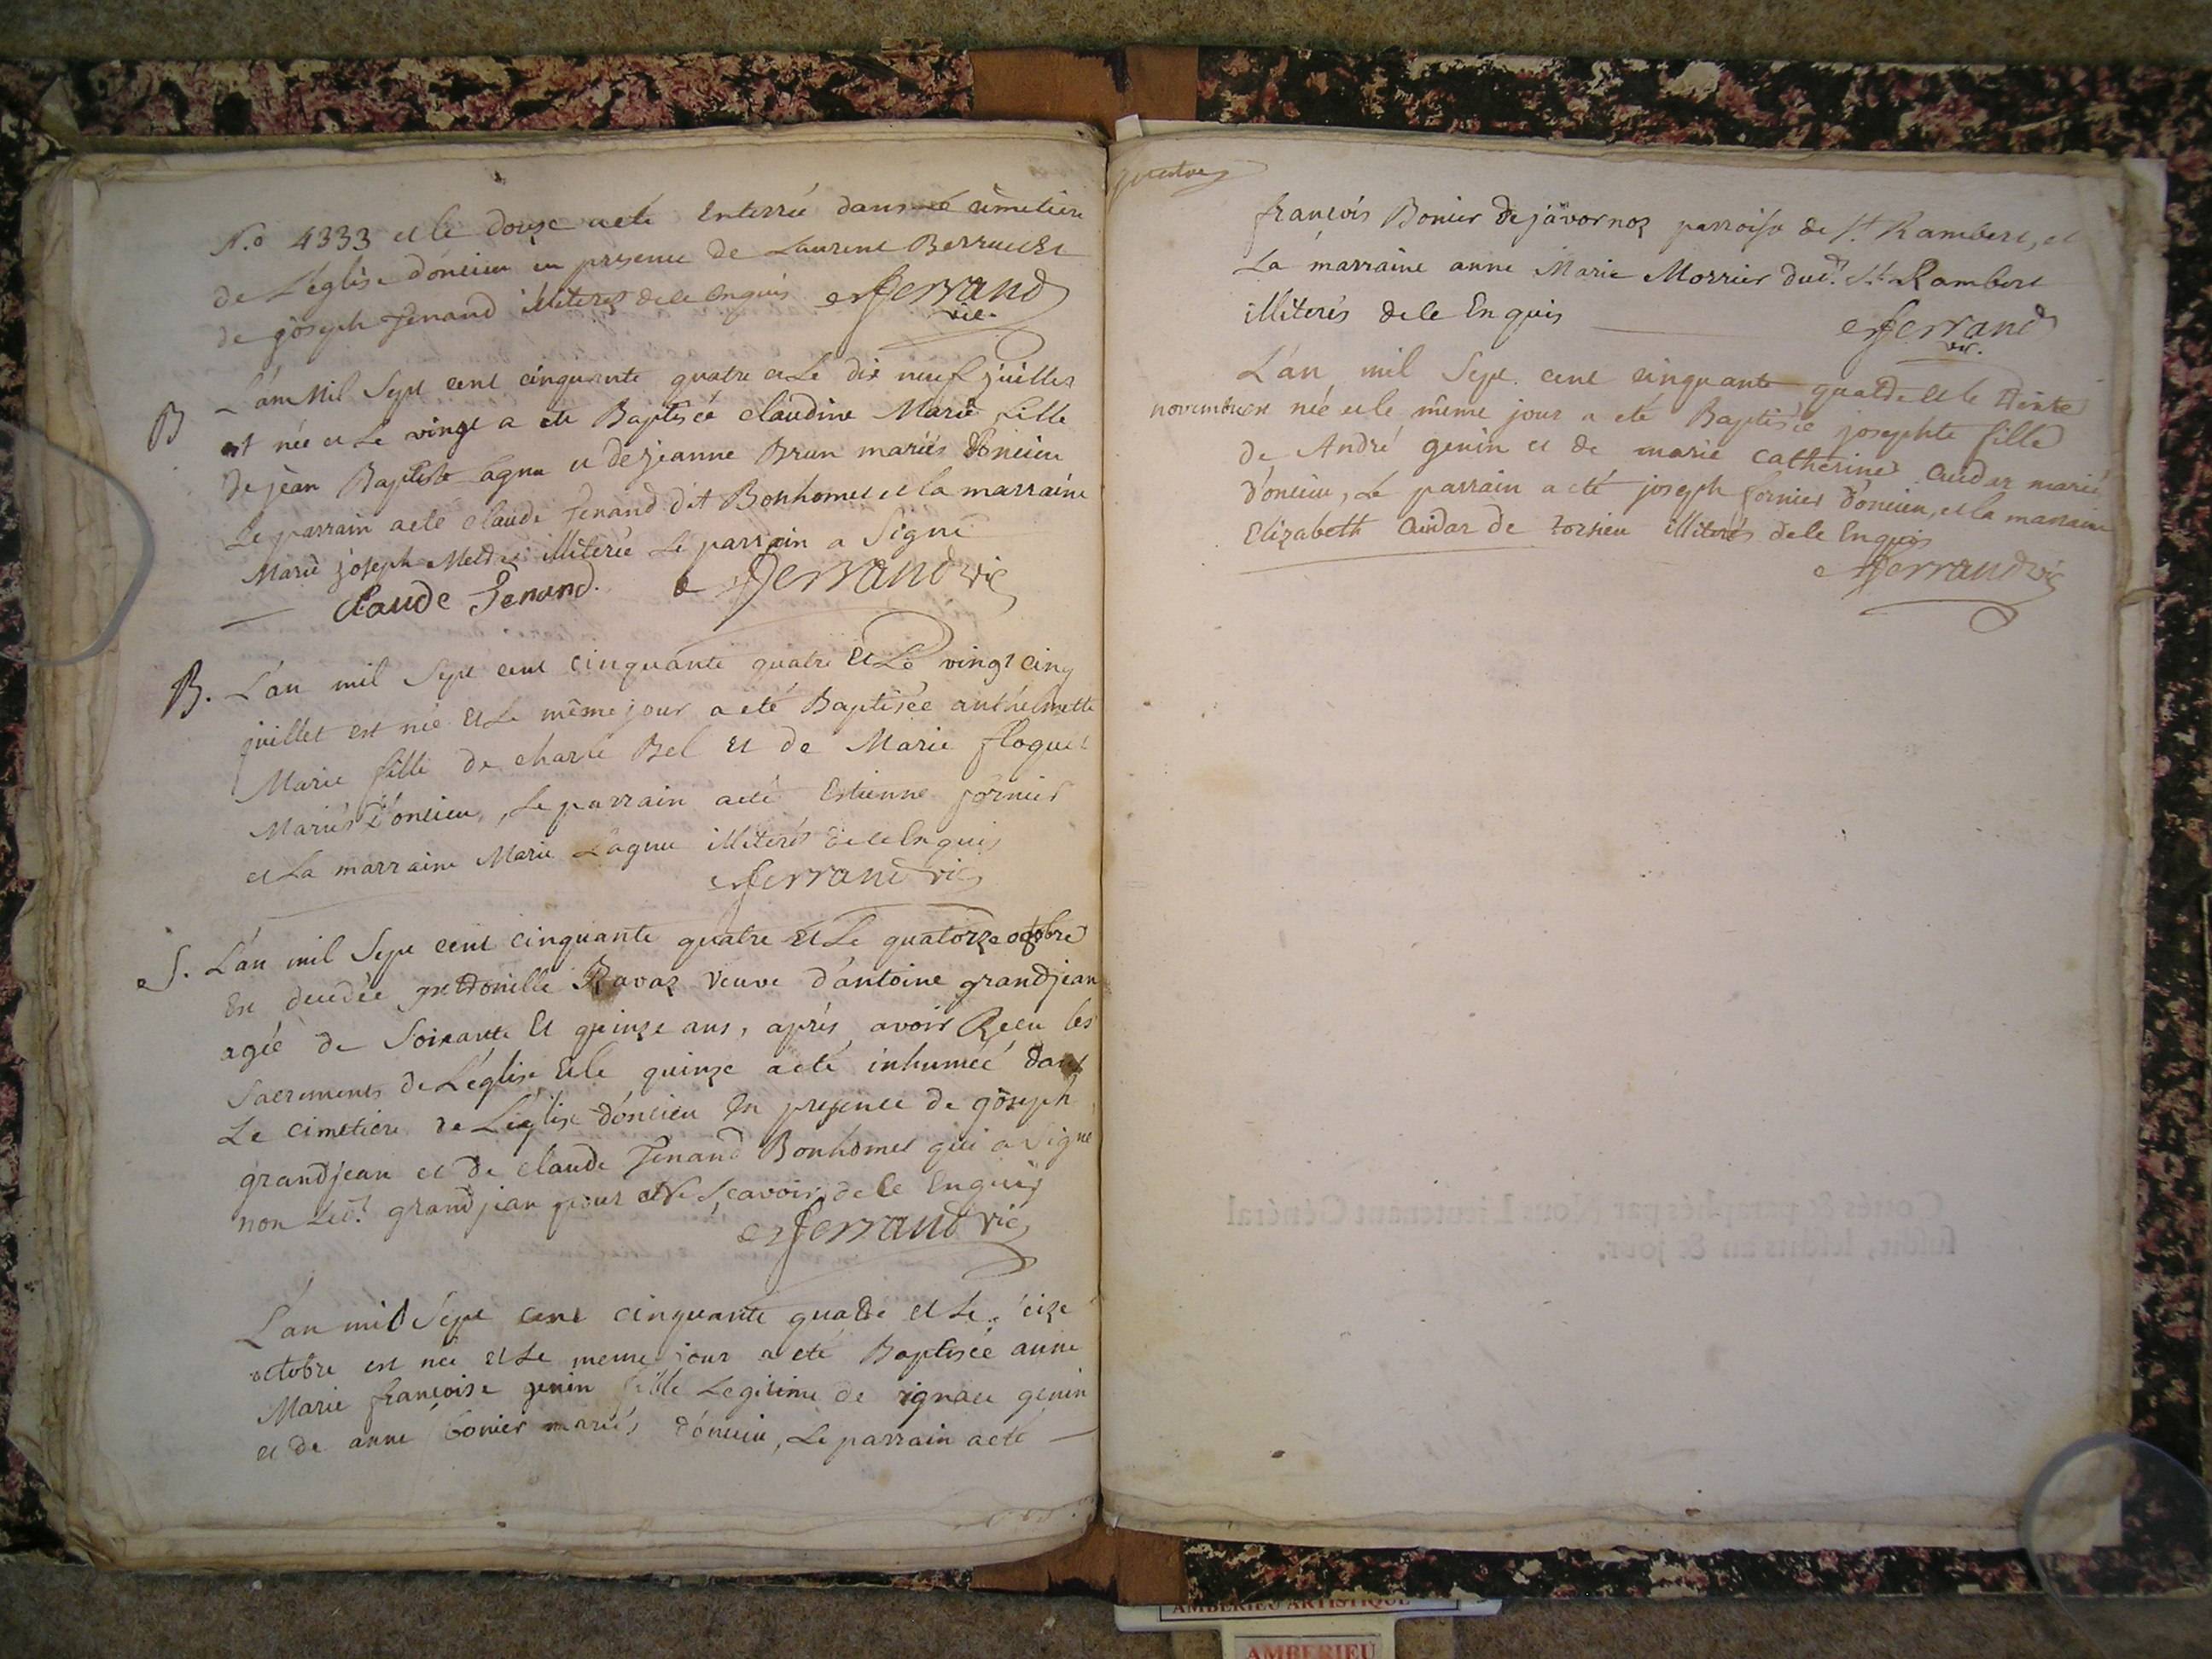 N.o 4333 et le douze a eté Enterrée dans le cimetiere
de L'église d'oncieu en presence de Laurent Berruet et
de joseph Tenand illiterés de ce Enquis ferrand
vic.
B L'an Mil Sept cent cinquante quatre et Le dix neuf juillet
est née et Le vingt a ete Baptisée claudine Marie fille
de jean Baptiste Lagnu et de jeanne Brun mariés d'oncieu
Le parrain a eté claude Tenand dit Bonhomet et la marraine
Marie joseph illiterée Le parrain a Signé
Claude Tenand. ferrand vic
B. L'an mil Sept cent cinquante quatre et Le vingt cinq
juillet est née et Le même jour a eté Baptisée anthelmette
Marie fille de charle Bel et de Marie floquet
Mariés d'oncieu, Le parrain a eté Estienne fornier
et La marraine Marie Lagnu illiterés de ce Enquis
ferrand vic
S. L'an mil Sept cent cinquante quatre et Le quatorze octobre
Est decedée petronille Ravaz Veuve d'antoine grandjean
agée de Soixante et quinze ans, après avoir Reçu les
Sacrements de L'église et le quinze a eté inhumée dans
Le cimetiere de L'église d'oncieu En presence de joseph
grandjean et de claude Tenand Bonhomet qui a Signé
non Led.t grandjean pour ne Sçavoir de ce Enquis
ferrand vic
L'an mil Sept cent cinquante quatre et Le seize
octobre est née et Le meme jour a eté Baptisée anne
Marie françoise genin fille Legitime de ignace genin
et de anne bonier mariés d'oncieu, Le parrain a eté
françois Bonier de javornoz parroisse de St. Rambert, et
La marraine anne Marie Morrier dud.t St. Rambert
illiterés de ce Enquis ferrand
vic.
L'an mil Sept cent cinquante quatre et le trente
novembre est née et le même jour a eté Baptisée josephte fille
de André genin et de marie catherine Cuidar mariés
d'oncieu, Le parrain a eté joseph fornier d'oncieu, et la marraine
Elizabeth Cuidar de torsieu illiterés de ce Enquis
ferrand vic
Cottés & paraphés par Nous Lieutenant Général
susdit, lesdits an & jour.
AMBERIEU ARTISTIQUE
AMBERIEU